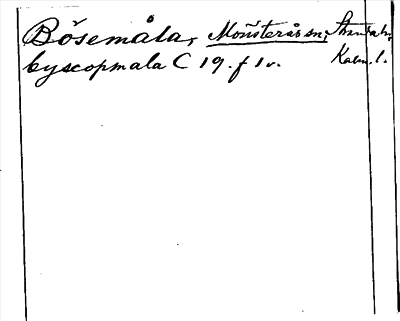 Bösemåla, Mönsterås sn, Stranda hd,
byscopmala C 19. f 1 v. Kalm. l.